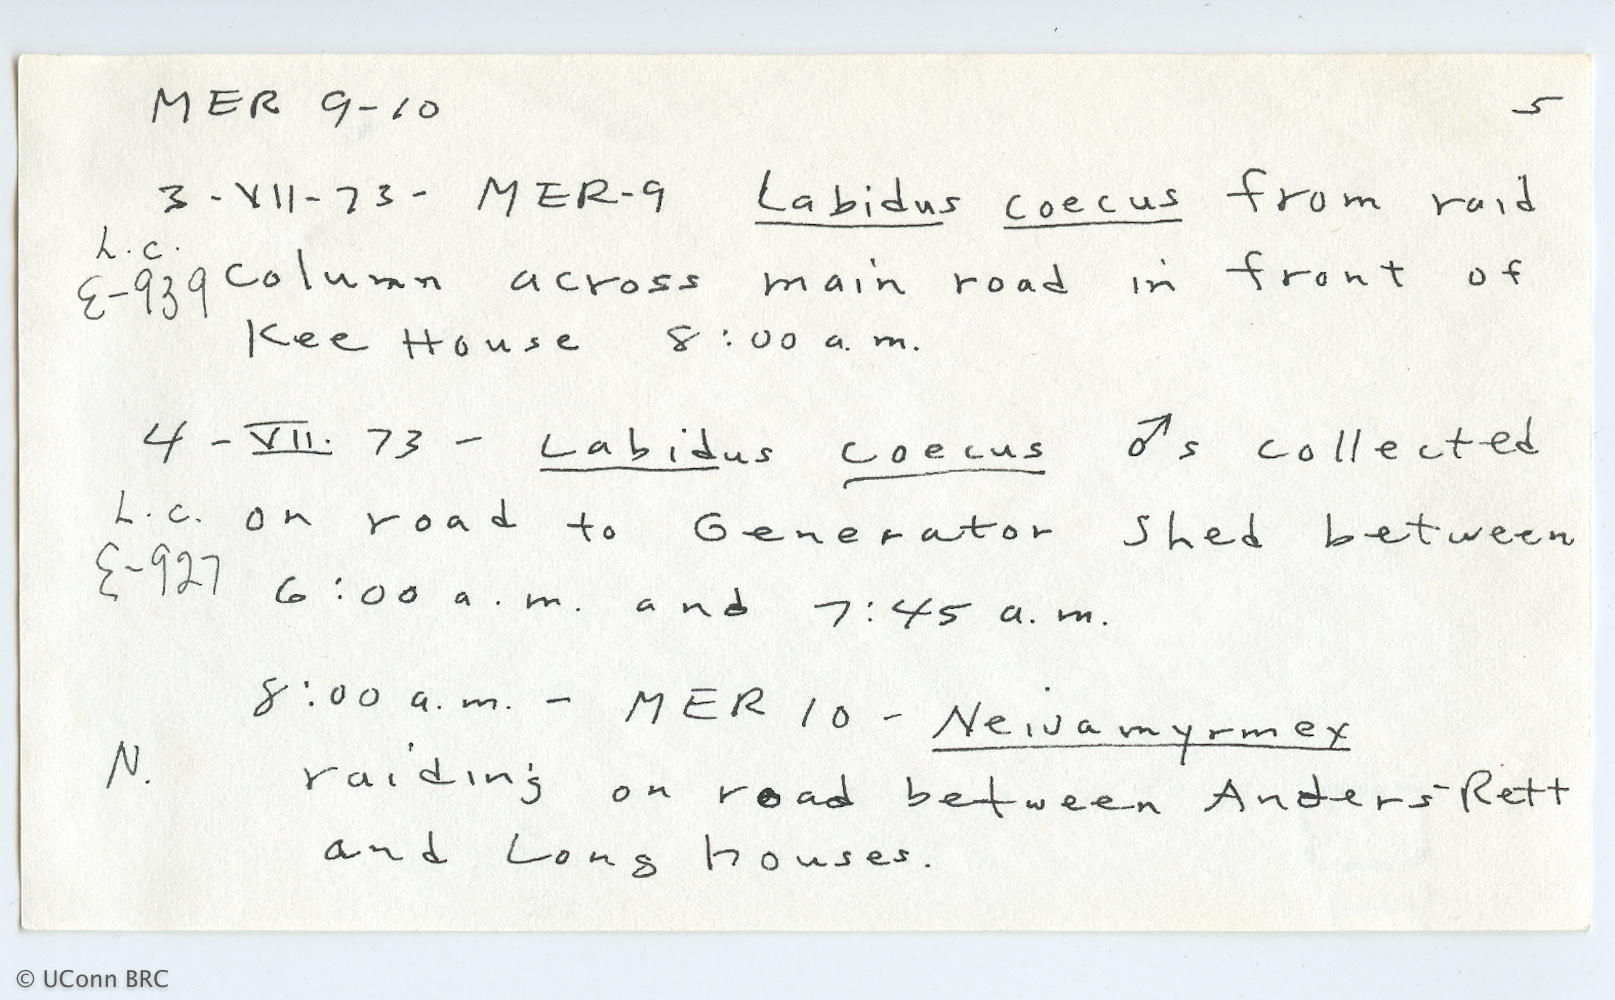 MER 9-10 5
3-VII-73- MER-9 Labidus coecus from raid
L.c.
E-939 column across main road in front of
Kee House 8:00 a.m.
4-VII.73- Labidus coecus ♂s collected
L.c. on road to Generator shed between
E-927 6:00 a.m. and 7:45 a.m.
8:00 a.m. - MER 10 - Neivamyrmex
N. raiding on road between Anders-Rett
and Long houses.
© UConn BRC